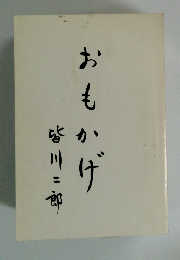 おもかげ
皆川二郎